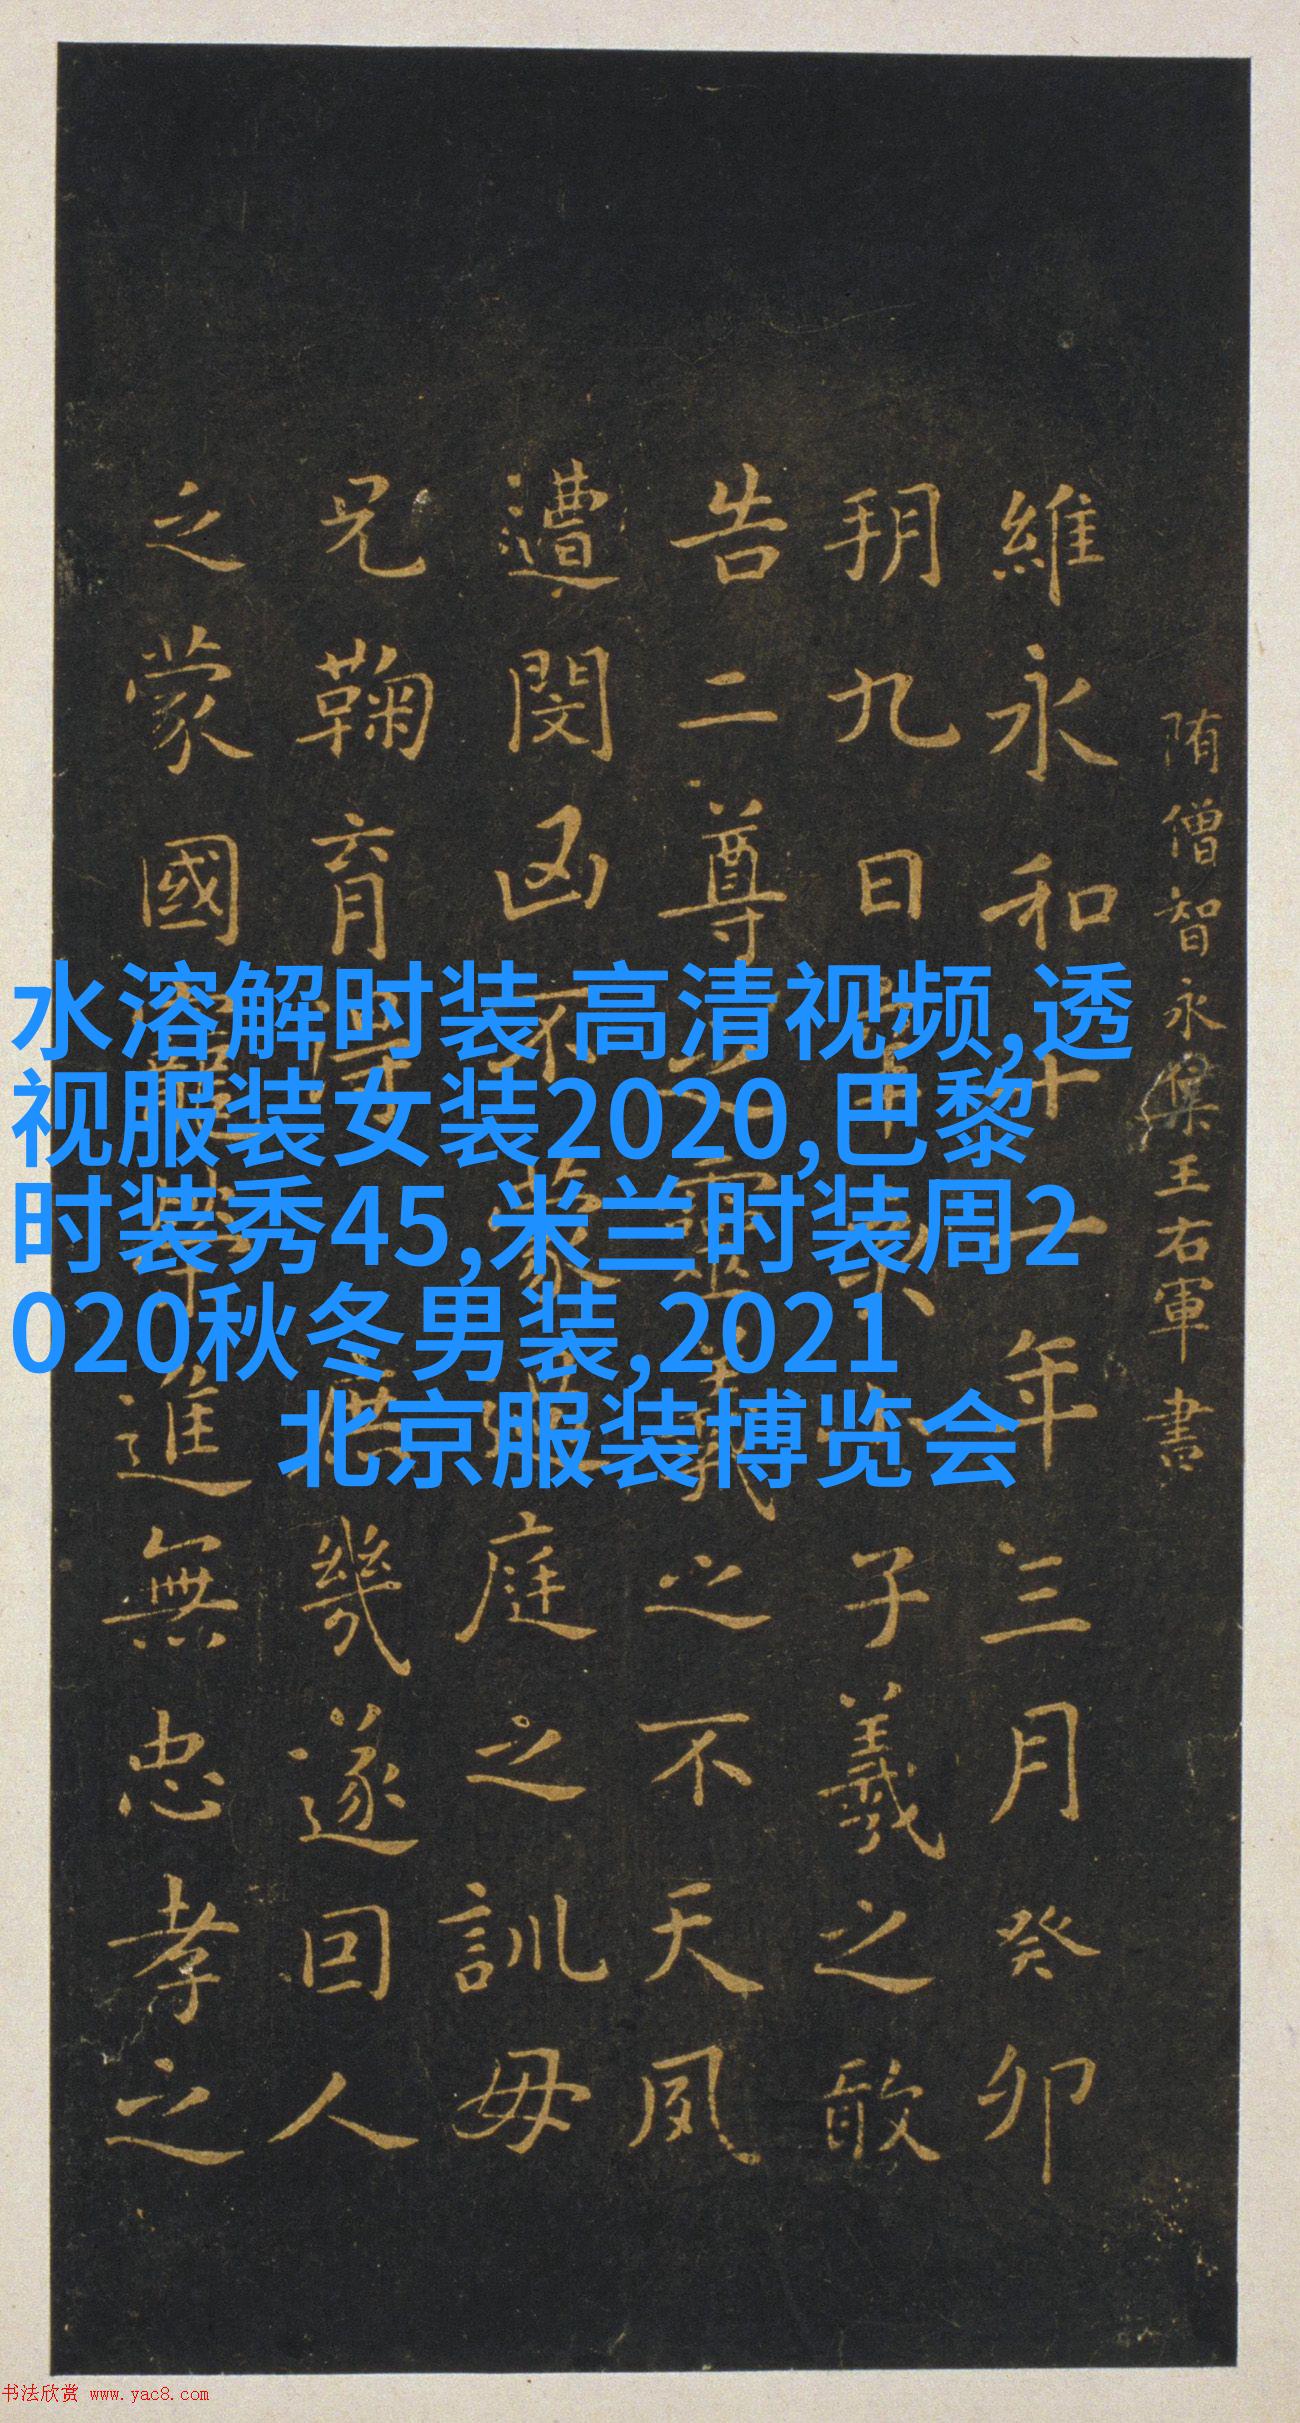 隋僧智永集王右軍書
維永和十一年三月癸卯
朔九日辛亥小子羲之敢
告二尊之靈羲之不天夙
遭閔凶不蒙過庭之訓母
兄鞠育得庶幾遂回人
之蒙國寵榮進無忠孝之
水溶解时装 高清视频,透
视服装女装2020,巴黎
时装秀45,米兰时装周2
020秋冬男装,2021
北京服装博览会
书法欣赏 www.yac8.com